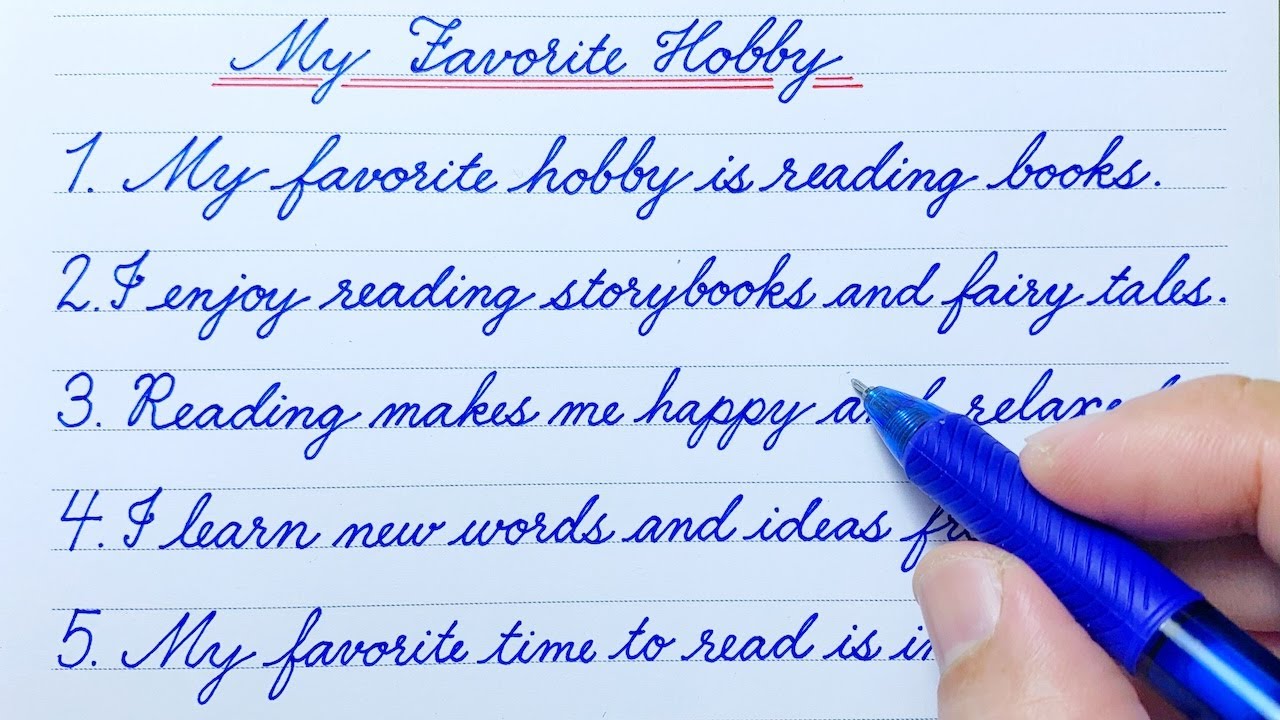 My Favorite Hobby
1. My favorite hobby is reading books.
2. I enjoy reading storybooks and fairy tales.
3. Reading makes me happy and relaxed
4. I learn new words and ideas
5. My favorite time to read is